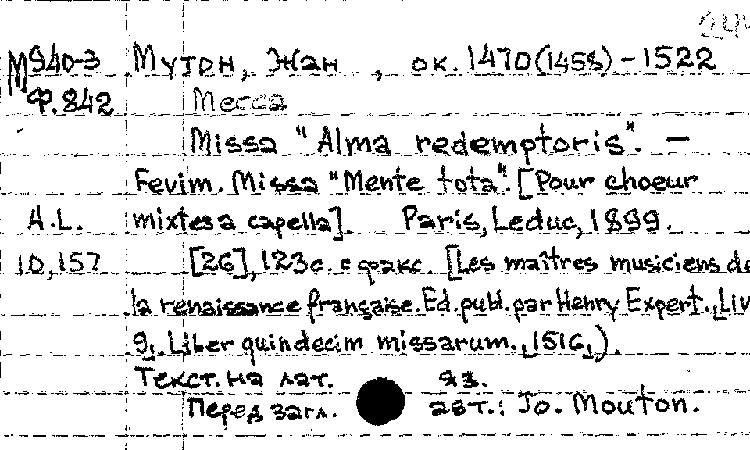 М940-3 Мутон, Жан, ок. 1470(1458)-1522
Ф.842 Месса
Missa "Alma redemptoris". —
Fevim. Missa "Mente tota". [Pour choeur
H.L. mixtes a capella]. Paris, Leduc, 1899.
10,157 [26], 123с. с факс. [Les maîtres musiciens de
la renaissance française. Ed. publ. par Henry Expert. [Liv
9]. Liber quindecim missarum. [1516]).
Текст. на лат. яз.
Перед загл. авт.: Jo. Mouton.